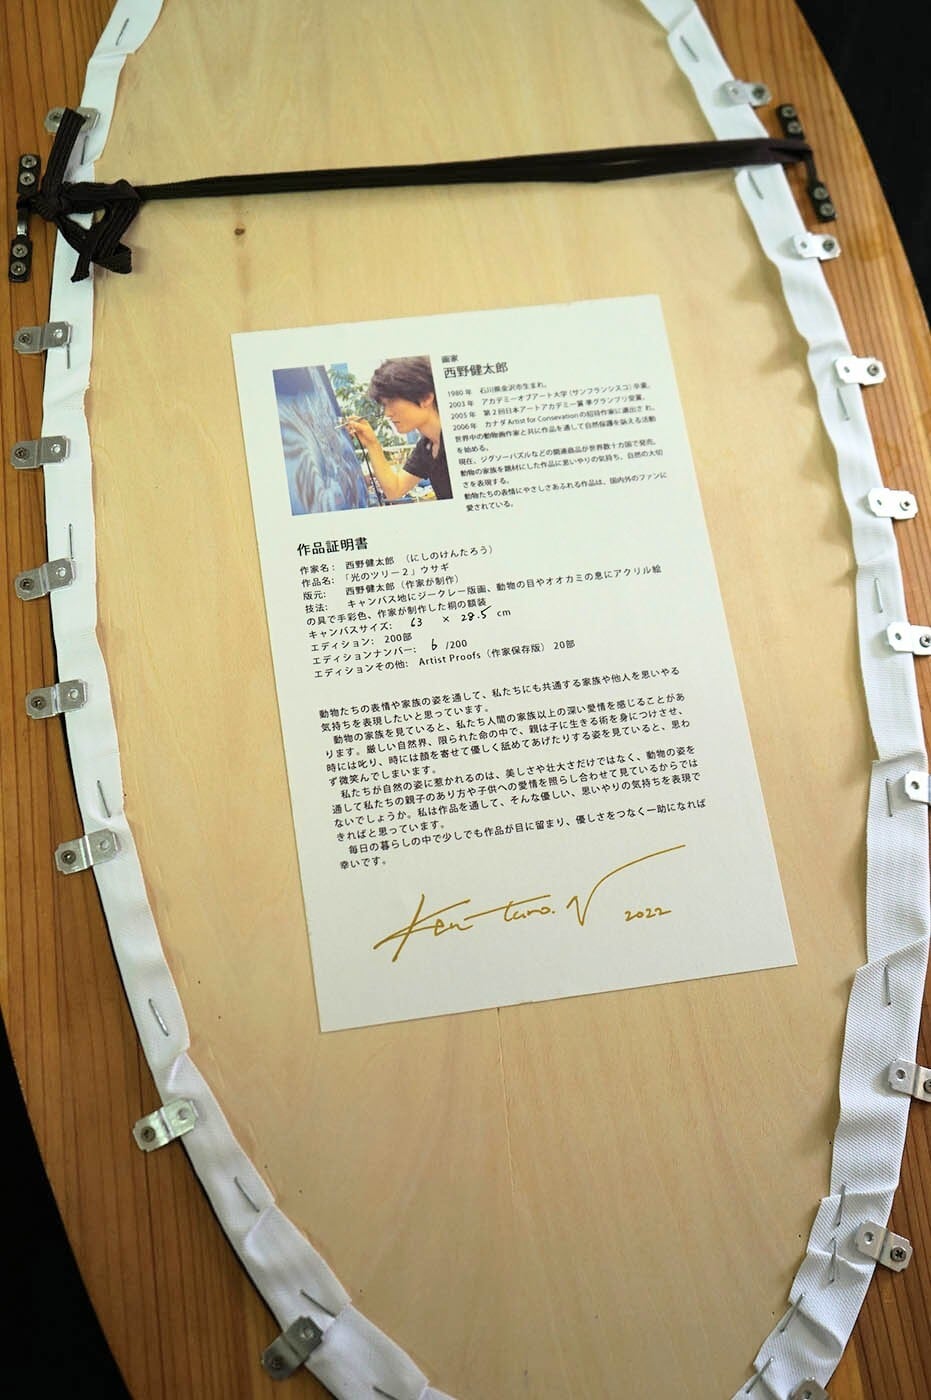 画家
西野健太郎
1980年 石川県金沢市生まれ。
2003年 アカデミーオブアート大学（サンフランシスコ）卒業。
2005年 第2回日本アートアカデミー賞 準グランプリ受賞。
2006年 カナダ Artist for Consevation の招待作家に選出され、
世界中の動物画作家と共に作品を通して自然保護を訴える活動
を始める。
現在、ジグソーパズルなどの関連商品が世界数十カ国で発売。
動物の家族を題材にした作品に思いやりの気持ち、自然の大切
さを表現する。
動物たちの表情にやさしさあふれる作品は、国内外のファンに
愛されている。
作品証明書
作家名： 西野健太郎 （にしのけんたろう）
作品名： 「光のツリー２」ウサギ
版元： 西野健太郎（作家が制作）
技法： キャンバス地にジークレー版画、動物の目やオオカミの息にアクリル絵
の具で手彩色、作家が制作した桐の額装
キャンバスサイズ： 63 × 28.5 cm
エディション： 200部
エディションナンバー： 6 /200
エディションその他： Artist Proofs（作家保存版） 20部
動物たちの表情や家族の姿を通して、私たちにも共通する家族や他人を思いやる
気持ちを表現したいと思っています。
動物の家族を見ていると、私たち人間の家族以上の深い愛情を感じることがあ
ります。厳しい自然界、限られた命の中で、親は子に生きる術を身につけさせ、
時には叱り、時には顔を寄せて優しく舐めてあげたりする姿を見ていると、思わ
ず微笑んでしまいます。
私たちが自然の姿に惹かれるのは、美しさや壮大さだけではなく、動物の姿を
通して私たちの親子のあり方や子供への愛情を照らし合わせて見ているからでは
ないでしょうか。私は作品を通して、そんな優しい、思いやりの気持ちを表現で
きればと思っています。
毎日の暮らしの中で少しでも作品が目に留まり、優しさをつなぐ一助になれば
幸いです。
Ken taro. N 2022